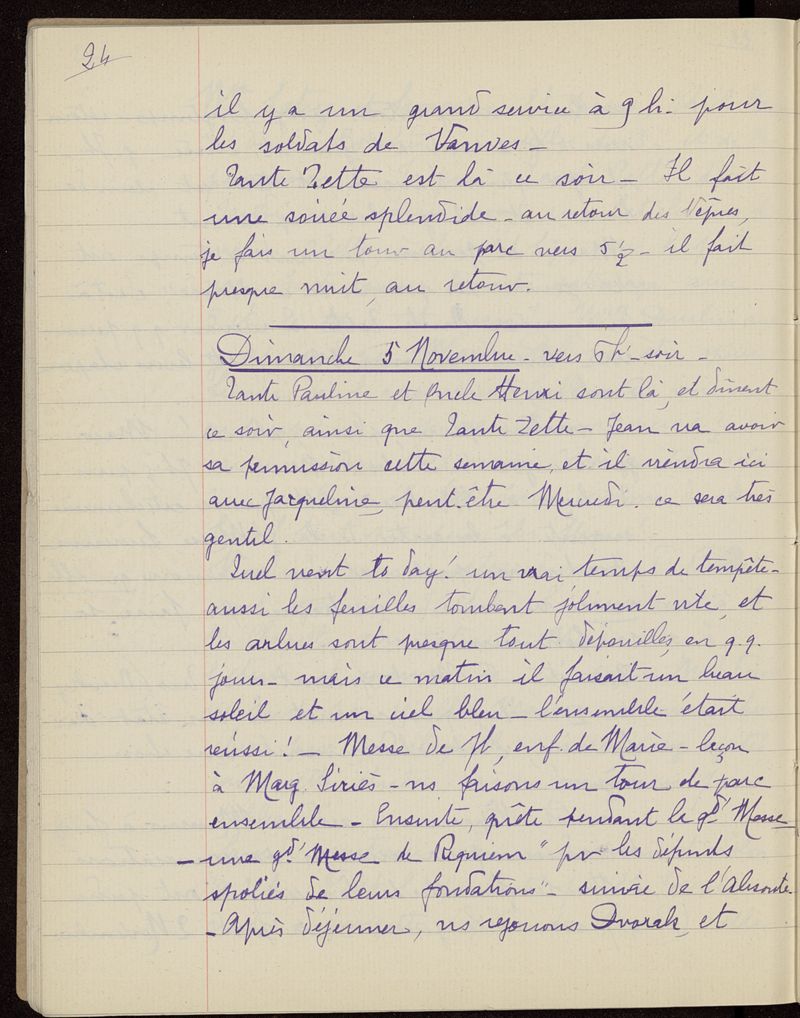 24
il y a un grand service à 9 h. pour
les soldats de Vanves –
Tante Zette est là ce soir – Il fait
une soirée splendide – au retour des Vêpres,
je fais un tour au parc vers 5 ½ – il fait
presque nuit, au retour.
Dimanche 5 Novembre – vers 6h soir –
Tante Pauline et Oncle Henri sont là, et dînent
ce soir, ainsi que Tante Zette – Jean va avoir
sa permission cette semaine, et il viendra ici
avec Jacqueline, peut-être Mercredi. ce sera très
gentil.
Quel vent to day! un vrai temps de tempête –
aussi les feuilles tombent joliment vite, et
les arbres sont presque tout dépouillés, en q.q.
jours – mais ce matin il faisait un beau
soleil et un ciel bleu – l'ensemble était
réussi! – Messe de 7h, enf. de Marie – leçon
à Marg. Siriès – ns faisons un tour de parc
ensemble – Ensuite, quête pendant la gd' Messe
– une gd' Messe de Requiem "pr les défunts
spoliés de leurs fondations" – suivie de l'Absoute.
– Après déjeuner, ns rejouons Dvorak, et